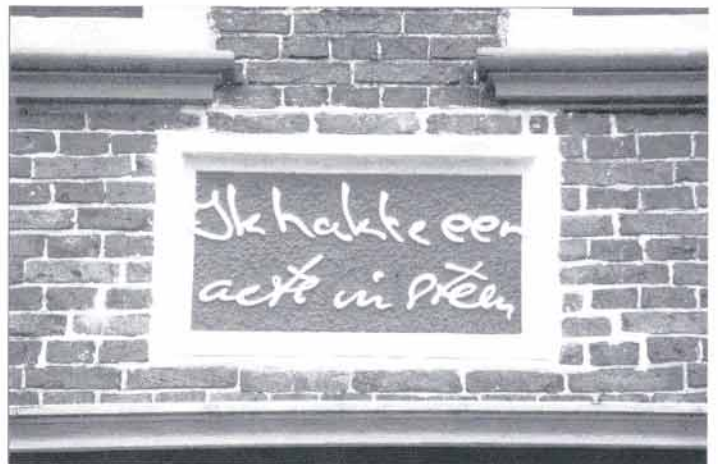 Ik hakte een
acte in steen